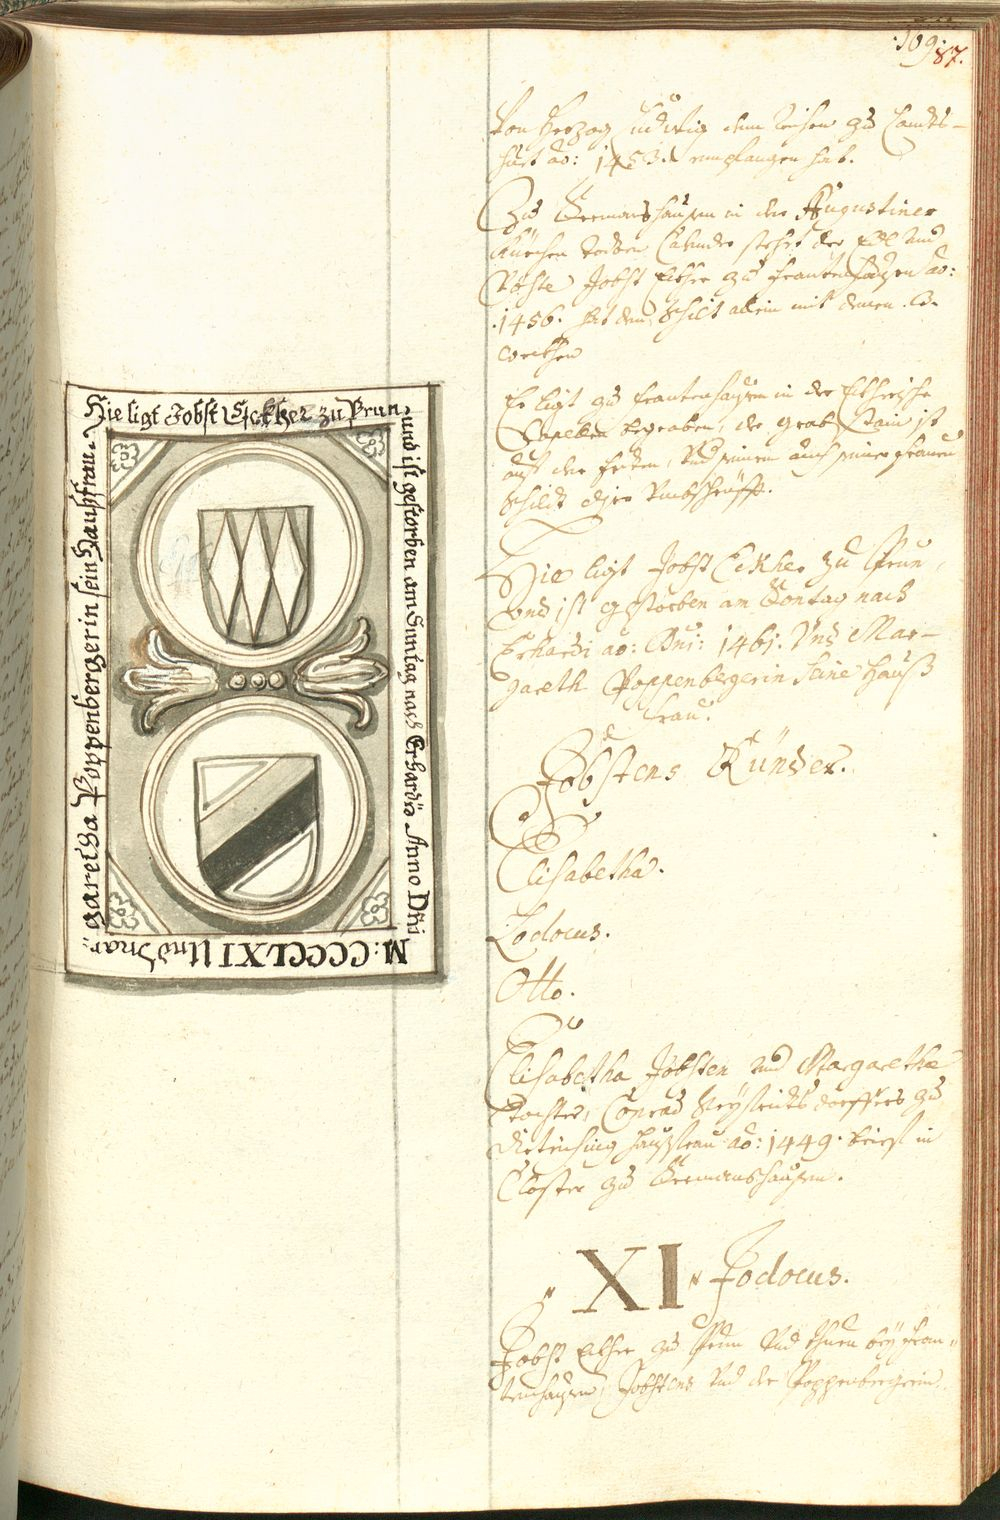 .109.
87.
Von Herzog Ludwig dem Reichen zu Landts-
huet ao: 1453. empfangen hat.
Zu Seemanshausen in der Augustiner
Kürchen stehet der Edl und
Vöste Jobst Ekher zu Frantenhausen ao:
1456. hat den Schilt allein mit denen
Er ligt zu Frantenhausen in der Ekherischen
Capellen begraben, der grab Stain ist
auf der Erden, und seinem auch seiner Frauen
Schildt dise Umbschrüfft.
Hie ligt Jobst Eckher zu Prun,
vnd ist gestorben am Sontag nach
Erhardi ao: Dni: 1461. Vnd Mar-
gareth Poppenbergerin seine Hauß
frau.
Jobstens Künder.
Elisabetha.
Jodocus.
Otto.
Elisabetha Jobsten und Margarethæ
Tochter, Conrad zu
Dietrichung Hausfrau ao: 1449. brief in
Closter zu Seemanshausen.
XI Jodocus.
Jobst Ekher zu Prun und bey Fran-
tenhausen, Jobstens und der Poppenbergerin
Hie ligt Jobst Eckher zu Prun,
und ist gestorben am Suntag nach Erhardi Anno Dni
M:CCCCLXI Und Mar:
garetha Poppenbergerin sein Haußfrau.